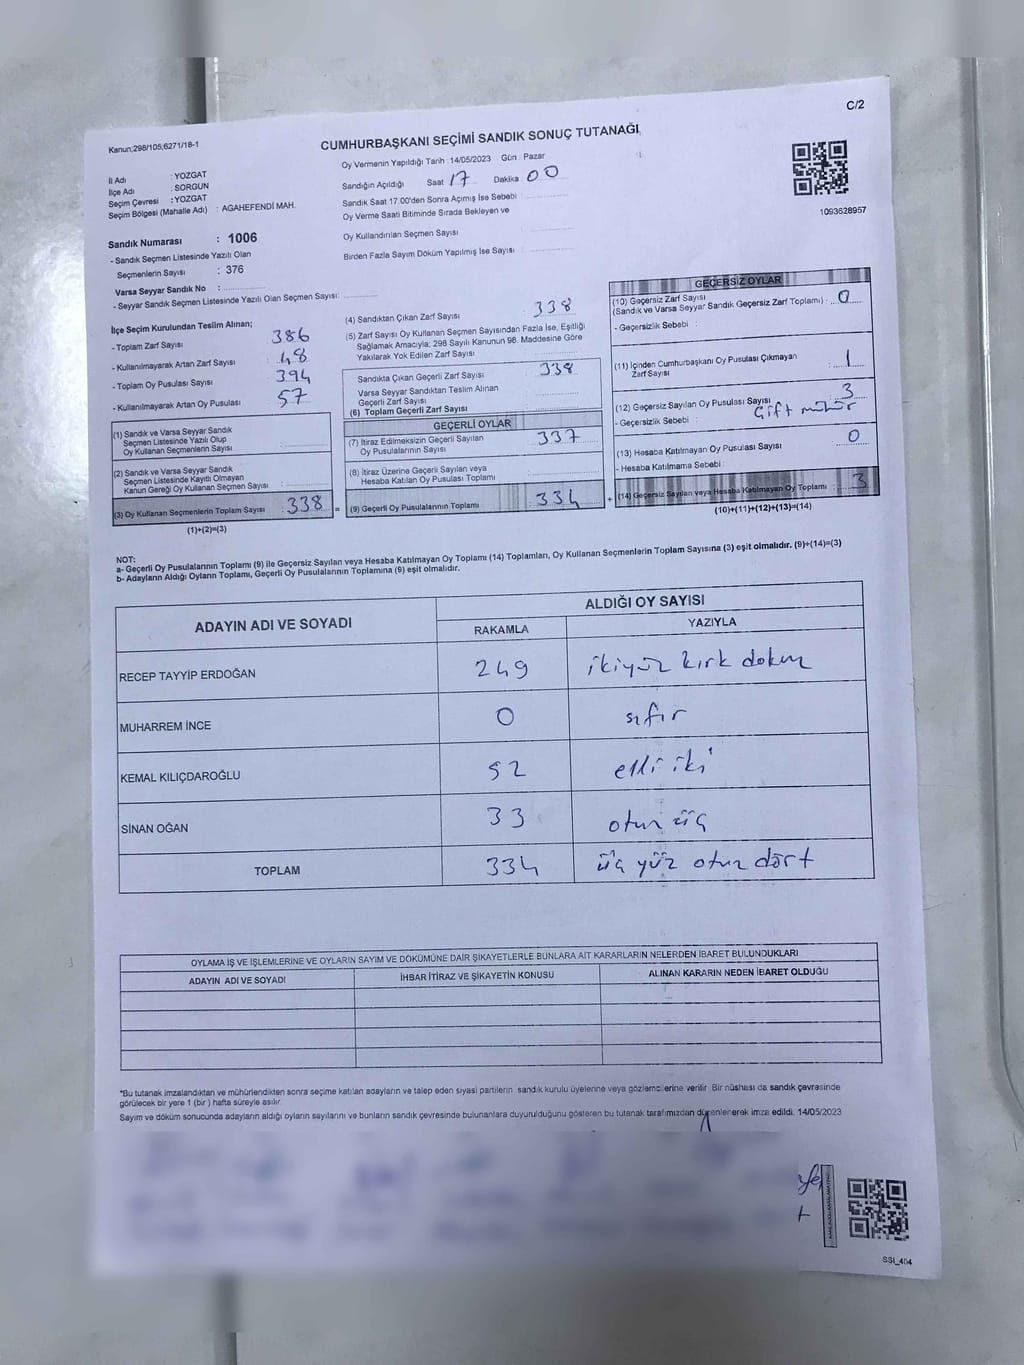 C/2
Kanun;298/105;6271/18-1
CUMHURBAŞKANI SEÇİMİ SANDIK SONUÇ TUTANAĞI
Oy Vermenin Yapıldığı Tarih : 14/05/2023 Gün : Pazar
İl Adı : YOZGAT
İlçe Adı : SORGUN
Seçim Çevresi : YOZGAT
Seçim Bölgesi (Mahalle Adı) : AGAHEFENDİ MAH.
Sandığın Açıldığı Saat 17 Dakika 00
Sandık Saat 17.00'den Sonra Açımış İse Sebebi :
Oy Verme Saati Bitiminde Sırada Bekleyen ve
Oy Kullandırılan Seçmen Sayısı
Birden Fazla Sayım Döküm Yapılmış İse Sayısı :
1093628957
Sandık Numarası : 1006
- Sandık Seçmen Listesinde Yazılı Olan
Seçmenlerin Sayısı : 376
Varsa Seyyar Sandık No :
- Seyyar Sandık Seçmen Listesinde Yazılı Olan Seçmen Sayısı:
İlçe Seçim Kurulundan Teslim Alınan;
- Toplam Zarf Sayısı 386
- Kullanılmayarak Artan Zarf Sayısı 48
- Toplam Oy Pusulası Sayısı 394
- Kullanılmayarak Artan Oy Pusulası 57
(1) Sandık ve Varsa Seyyar Sandık
Seçmen Listesinde Yazılı Olup
Oy Kullanan Seçmenlerin Sayısı
(2) Sandık ve Varsa Seyyar Sandık
Seçmen Listesinde Kayıtlı Olmayan
Kanun Gereği Oy Kullanan Seçmen Sayısı :
(3) Oy Kullanan Seçmenlerin Toplam Sayısı : 338 =
(1)+(2)=(3)
(4) Sandıktan Çıkan Zarf Sayısı 338
(5) Zarf Sayısı Oy Kullanan Seçmen Sayısından Fazla İse, Eşitliği
Sağlamak Amacıyla; 298 Sayılı Kanunun 98. Maddesine Göre
Yakılarak Yok Edilen Zarf Sayısı
Sandıkta Çıkan Geçerli Zarf Sayısı 338
Varsa Seyyar Sandıktan Teslim Alınan
Geçerli Zarf Sayısı
(6) Toplam Geçerli Zarf Sayısı
GEÇERLİ OYLAR
(7) İtiraz Edilmeksizin Geçerli Sayılan
Oy Pusulalarının Sayısı 337
(8) İtiraz Üzerine Geçerli Sayılan veya
Hesaba Katılan Oy Pusulası Toplamı
(9) Geçerli Oy Pusulalarının Toplamı 334 +
GEÇERSİZ OYLAR
(10) Geçersiz Zarf Sayısı
(Sandık ve Varsa Seyyar Sandık Geçersiz Zarf Toplamı) : 0
- Geçersizlik Sebebi :
(11) İçinden Cumhurbaşkanı Oy Pusulası Çıkmayan
Zarf Sayısı 1
(12) Geçersiz Sayılan Oy Pusulası Sayısı 3
- Geçersizlik Sebebi : Çift mühür
(13) Hesaba Katılmayan Oy Pusulası Sayısı 0
- Hesaba Katılmama Sebebi :
(14) Geçersiz Sayılan veya Hesaba Katılmayan Oy Toplamı : 3
(10)+(11)+(12)+(13)=(14)
NOT:
a- Geçerli Oy Pusulalarının Toplamı (9) ile Geçersiz Sayılan veya Hesaba Katılmayan Oy Toplamı (14) Toplamları, Oy Kullanan Seçmenlerin Toplam Sayısına (3) eşit olmalıdır. (9)+(14)=(3)
b- Adayların Aldığı Oyların Toplamı, Geçerli Oy Pusulalarının Toplamına (9) eşit olmalıdır.
ADAYIN ADI VE SOYADI ALDIĞI OY SAYISI
RAKAMLA YAZIYLA
RECEP TAYYİP ERDOĞAN 249 ikiyüz kırk dokuz
MUHARREM İNCE 0 sıfır
KEMAL KILIÇDAROĞLU 52 elli iki
SİNAN OĞAN 33 otuz üç
TOPLAM 334 üç yüz otuz dört
OYLAMA İŞ VE İŞLEMLERİNE VE OYLARIN SAYIM VE DÖKÜMÜNE DAİR ŞİKAYETLERLE BUNLARA AİT KARARLARIN NELERDEN İBARET BULUNDUKLARI
ADAYIN ADI VE SOYADI İHBAR İTİRAZ VE ŞİKAYETİN KONUSU ALINAN KARARIN NEDEN İBARET OLDUĞU
*Bu tutanak imzalandıktan ve mühürlendikten sonra seçime katılan adayların ve talep eden siyasi partilerin sandık kurulu üyelerine veya gözlemcilerine verilir. Bir nüshası da sandık çevresinde
görülecek bir yere 1 (bir) hafta süreyle asılır.
Sayım ve döküm sonucunda adayların aldığı oyların sayılarını ve bunların sandık çevresinde bulunanlara duyurulduğunu gösteren bu tutanak tarafımızdan düzenlenerek imza edildi. 14/05/2023
SSI_404